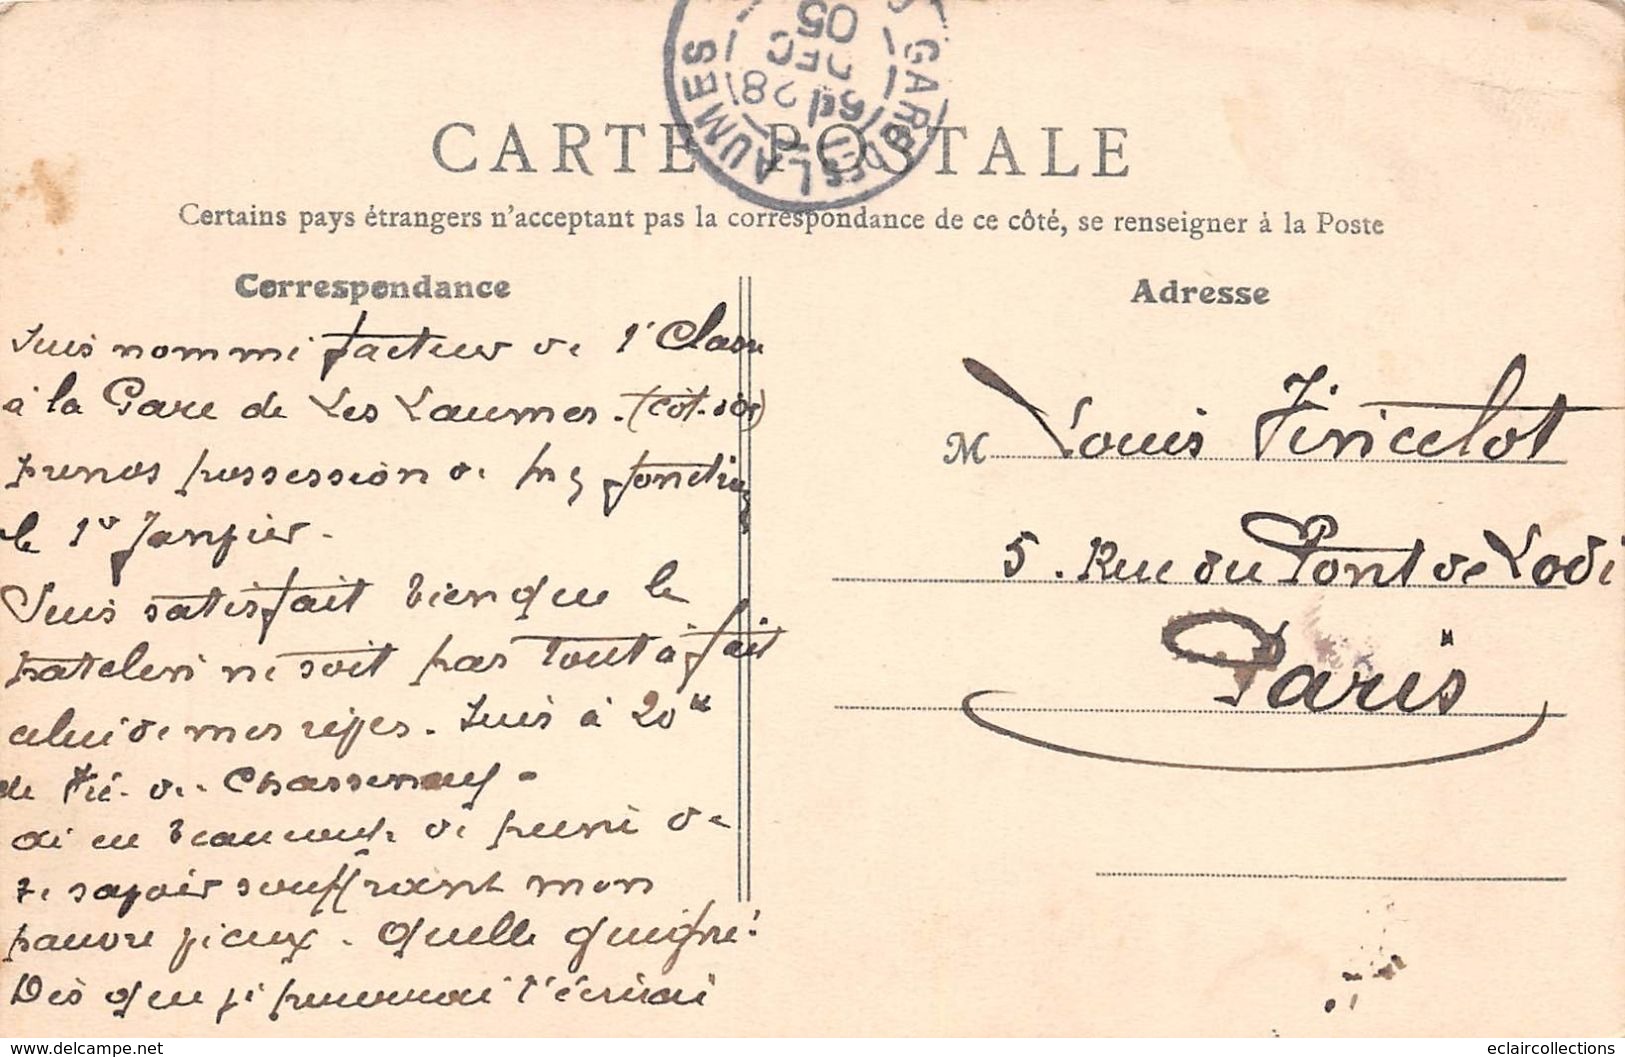 GARE DES LAUMES
6E 28
DEC
05
CARTE POSTALE
Certains pays étrangers n'acceptant pas la correspondance de ce côté, se renseigner à la Poste
Correspondance
Adresse
Suis nommé facteur de 1e Classe
à la Gare de Les Laumes. (Côt. d'Or)
prends possession de mes fonctions
le 1er Janvier.
Suis satisfait bien que le
patelin ne soit pas tout à fait
celui de mes rêves. Suis à 20 K
de de Chassenay.
ai eu beaucoup de peine de
te savoir souffrant mon
pauvre vieux. Quelle guigne!
Dès que je pourrai t'écrirai
M Louis Finicelot
5. Rue du Pont de Lodi
Paris
www.delcampe.net
eclaircollections